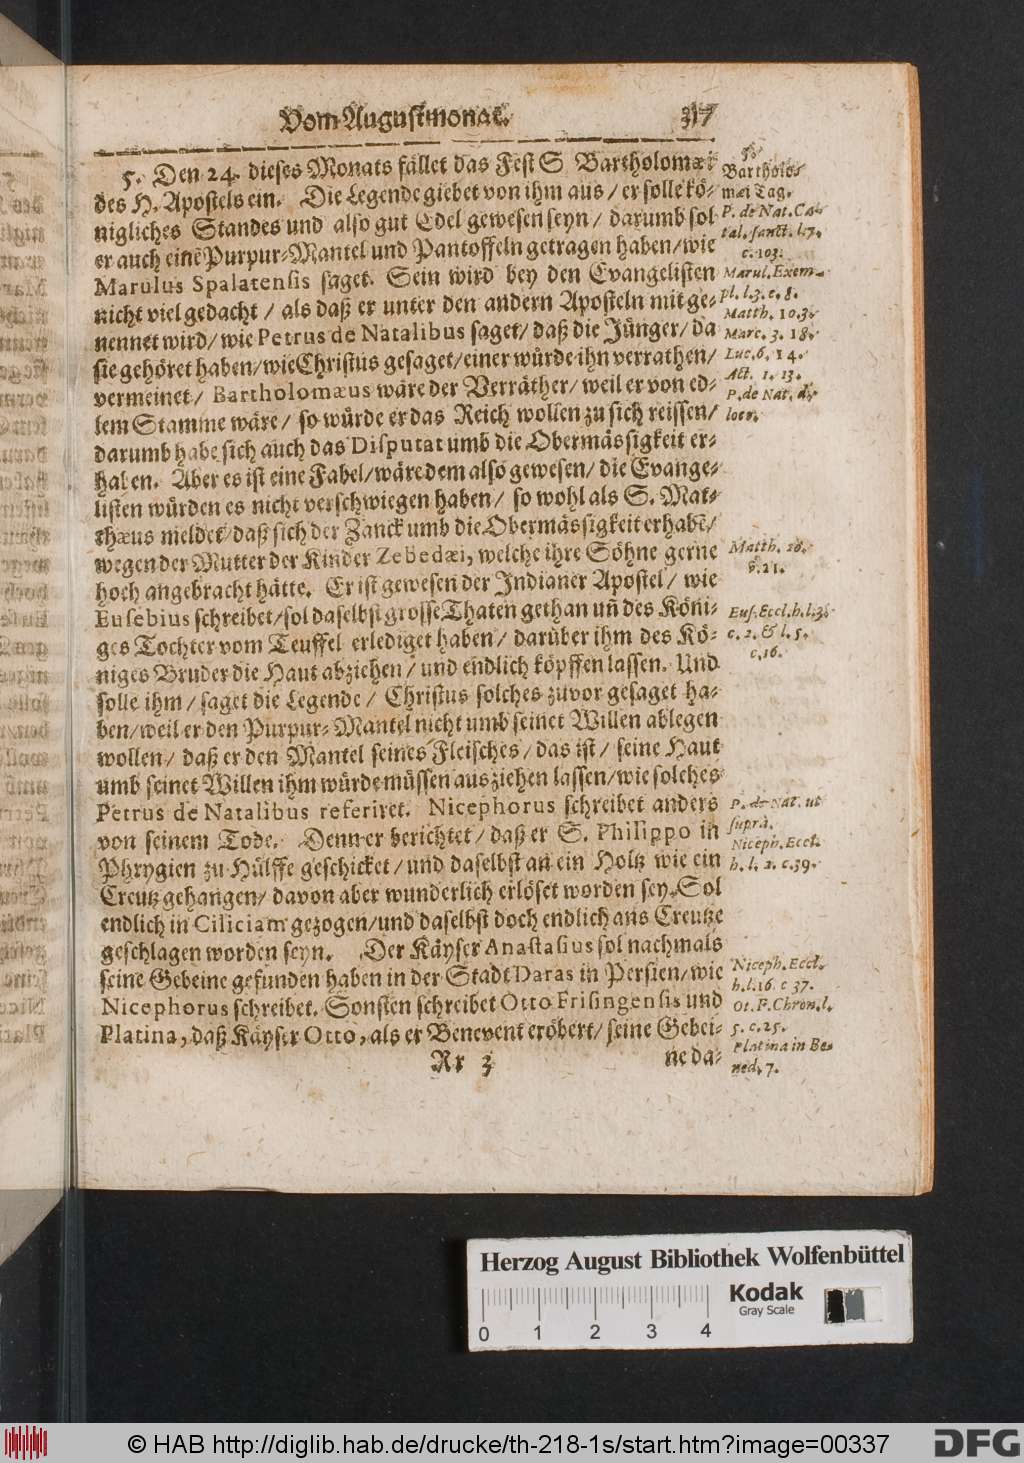 Vom Augustmonat. 317
5. Den 24. dieses Monats fället das Fest S Bartholomæi
des H. Apostels ein. Die Legende giebet von ihm aus / er solle kö-
nigliches Standes und also gut Edel gewesen seyn / darumb sol
er auch einē Purpur-Mantel und Pantoffeln getragen haben/ wie
Marulus Spalatensis saget. Sein wird bey den Evangelisten
nicht viel gedacht / als daß er unter den andern Aposteln mit ge-
nennet wird/ wie Petrus de Natalibus saget/ daß die Jünger/ da
sie gehöret haben/ wie Christus gesaget/ einer würde ihn verrathen/
vermeinet/ Bartholomæus wäre der Verräther/ weil er von ed-
lem Stamme wäre/ so würde er das Reich wollen zu sich reissen/
darumb habe sich auch das Disputat umb die Obermässigkeit er-
haben. Aber es ist eine Fabel/ wäre dem also gewesen/ die Evange-
listen würden es nicht verschwiegen haben/ so wohl als S. Mat-
thæus meldet/ daß sich der Zanck umb die Obermässigkeit erhabē/
wegen der Mutter der Kinder Zebedæi, welche ihre Söhne gerne
hoch angebracht hätte. Er ist gewesen der Indianer Apostel/ wie
Eusebius schreibet/ sol daselbst grosse Thaten gethan uñ des Köni-
ges Tochter vom Teuffel erlediget haben/ darüber ihm des Kö-
niges Bruder die Haut abziehen/ und endlich köpffen lassen. Und
solle ihm/ saget die Legende/ Christus solches zuvor gesaget ha-
ben/ weil er den Purpur-Mantel nicht umb seinet Willen ablegen
wollen/ daß er den Mantel seines Fleisches/ das ist/ seine Haut
umb seinet Willen ihm würde müssen ausziehen lassen/ wie solches
Petrus de Natalibus referiret. Nicephorus schreibet anders
von seinem Tode. Denn er berichtet/ daß er S. Philippo in
Phrygien zu Hülffe geschicket/ und daselbst an ein Holtz wie ein
Creutz gehangen/ davon aber wunderlich erlöset worden sey. Sol
endlich in Ciliciam gezogen/ und daselbst doch endlich ans Creutze
geschlagen worden seyn. Der Käyser Anastasius sol nachmals
seine Gebeine gefunden haben in der Stadt Daras in Persien/ wie
Nicephorus schreibet. Sonsten schreibet Otto Frisingensis und
Platina, daß Käyser Otto, als er Benevent eröbert/ seine Gebei-
Rr 3 ne da-
5.
Bartholo-
mæi Tag.
P. de Nat. Ca-
tal. sanct. l. 7.
c. 103.
Marul. Exem-
pl. l. 3. c. 8.
Matth. 10. 3.
Marc. 3. 18.
Luc. 6. 14.
Act. 1. 13.
P. de Nat. d.
loco.
Matth. 20.
v. 21.
Eus. Eccl. h. l. 3.
c. 2. & l. 5.
c. 16.
P. de Nat. ut
suprà.
Niceph. Eccl.
h. l. 2. c. 39.
Niceph. Eccl.
h. l. 16. c 37.
Ot. F. Chron. l.
5. c. 25.
Platina in Be-
ned. 7.
Herzog August Bibliothek Wolfenbüttel
Kodak
Gray Scale
0 1 2 3 4
© HAB http://diglib.hab.de/drucke/th-218-1s/start.htm?image=00337
DFG